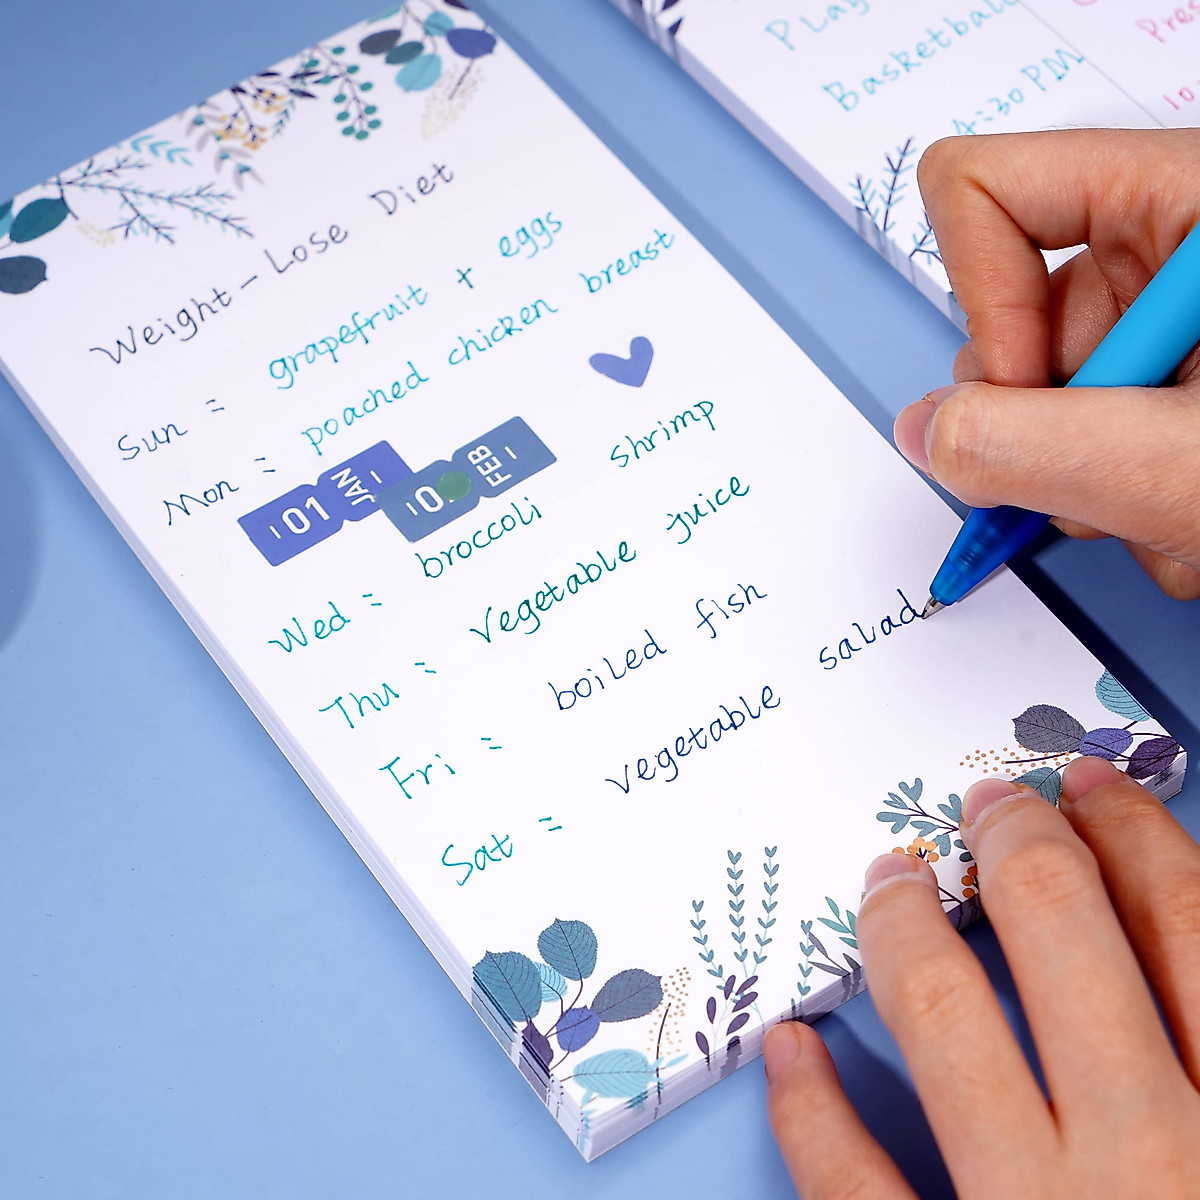 Weight-Lose Diet
Sun = grapefruit + eggs
Mon = poached chicken breast
01 JAN
0. FEB
Wed = broccoli shrimp
Thu = vegetable juice
Fri = boiled fish
Sat = vegetable salad
Play
Basketball
4:30 PM
Pres
10